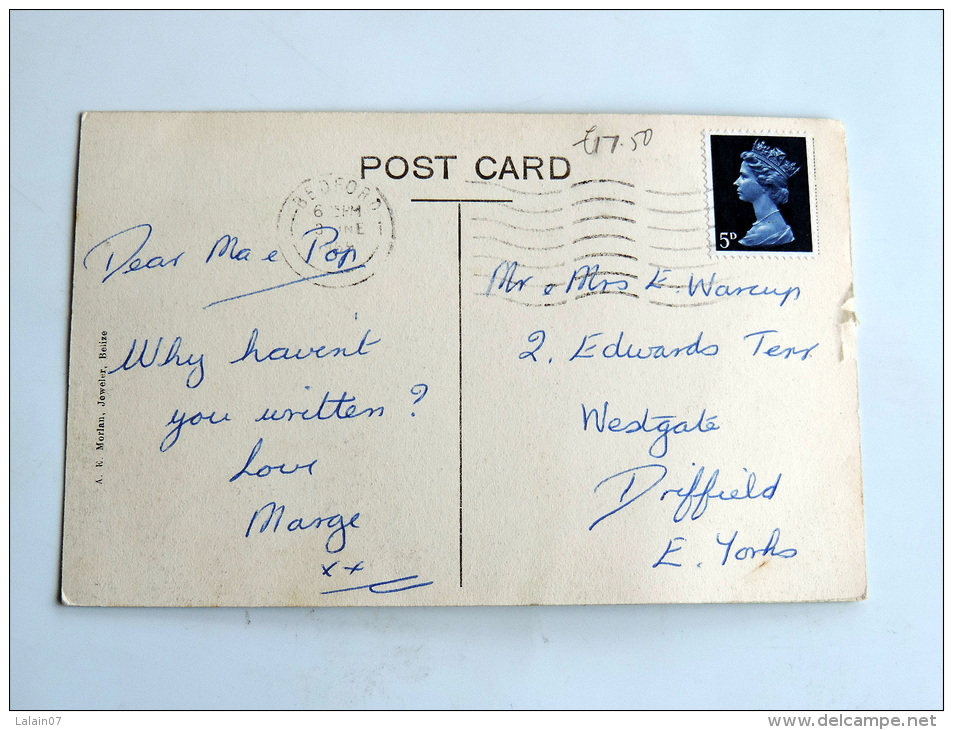 £17.50
POST CARD
BEDFORD
6 PM
5D
Dear Ma & Pop
Why haven't
you written?
Love
Marge
xx
Mr & Mrs E. Warcup
2. Edwards Terr
Westgate
Driffield
E. Yorks
A. E. Morlan, Jeweler, Belize
Lalain07
www.delcampe.net